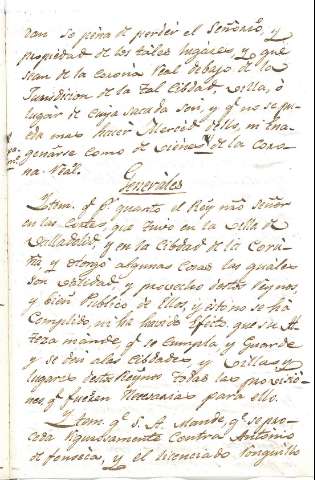 dan so pena de perder el Señorio, y
propiedad de los tales lugares y que
sean de la corona Real debajo de la
Jurisdicion de la tal Cibdad, Villa, ò
lugar de cuya sacada sea, y q.e no se pue
da mas hacer Merced dello, ni Ena
genarse como de vienes de la Coro
na Real.
Generales
Ytem. q.e p.r quanto el Rey nro Señor
en las Cortes, que tuvo en la Villa de
Valladolid, y en la Cibdad de la Coru
ña, y otorgò algunas cosas las quales
son utilidad, y provecho destos Reynos,
y bien Publico de Ellos, y esto no se ha
Complido, ni ha havido Efecto, que su Al
teza mànde, q.e se cumpla y Guarde
y se den alas Cibdades y Villas y
lugares destos Reynos todas las provisio
nes q.e fueren Necesarias para ello.
Ytem q.e S. A. Mande, q.e se pro
ceda Rigurosamente Contra Antonio
de fonseca, y el licenciado Ronquillo